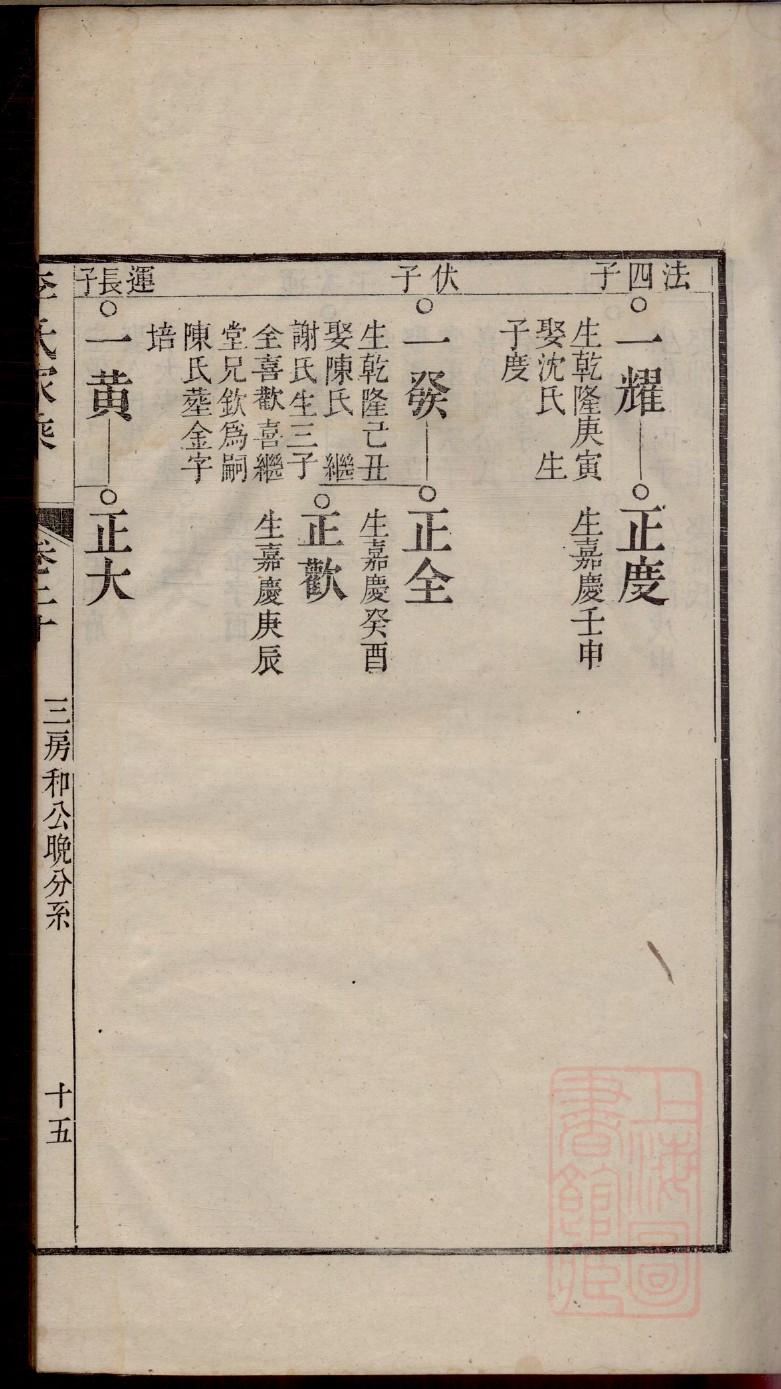 法四子
一耀
生乾隆庚寅
娶沈氏　生
子度
正度
生嘉慶壬申
伏子
一發
生乾隆己丑
娶陳氏　繼
謝氏生三子
全喜歡喜繼
堂兄欽爲嗣
陳氏塟金字
培
正全
生嘉慶癸酉
正歡
生嘉慶庚辰
運長子
一黃
正大
李氏家乘
卷二十
三房和公晚分系
十五
上海圖
書館藏